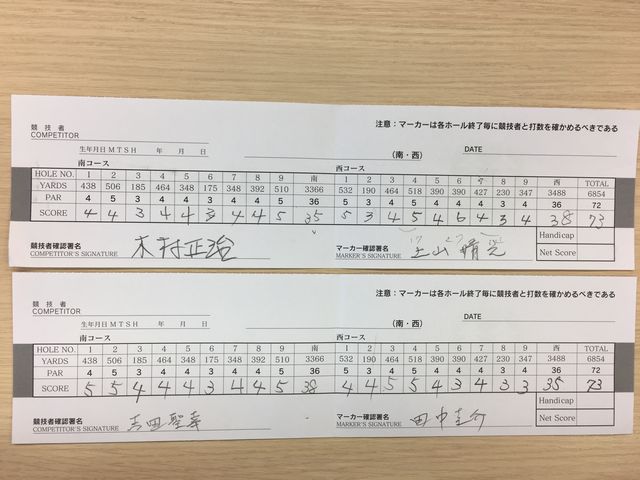 競 技 者
COMPETITOR
注意：マーカーは各ホール終了毎に競技者と打数を確かめるべきである
生年月日 M T S H 年 月 日
(南・西)
DATE
南コース
西コース
HOLE NO. 1 2 3 4 5 6 7 8 9 南 1 2 3 4 5 6 7 8 9 西 TOTAL
YARDS 438 506 185 464 348 175 348 392 510 3366 532 190 464 518 390 390 427 230 347 3488 6854
PAR 4 5 3 4 4 3 4 4 5 36 5 3 4 5 4 4 4 3 4 36 72
SCORE 4 4 3 4 4 3 4 4 5 35 5 3 4 5 4 6 4 3 4 38 73
Handicap
Net Score
競技者確認署名
COMPETITOR'S SIGNATURE
木村正治
マーカー確認署名
MARKER'S SIGNATURE
競 技 者
COMPETITOR
注意：マーカーは各ホール終了毎に競技者と打数を確かめるべきである
生年月日 M T S H 年 月 日
(南・西)
DATE
南コース
西コース
HOLE NO. 1 2 3 4 5 6 7 8 9 南 1 2 3 4 5 6 7 8 9 西 TOTAL
YARDS 438 506 185 464 348 175 348 392 510 3366 532 190 464 518 390 390 427 230 347 3488 6854
PAR 4 5 3 4 4 3 4 4 5 36 5 3 4 5 4 4 4 3 4 36 72
SCORE 5 5 4 4 4 3 4 4 5 38 4 4 5 5 4 3 4 3 3 35 73
Handicap
Net Score
競技者確認署名
COMPETITOR'S SIGNATURE
マーカー確認署名
MARKER'S SIGNATURE
田中圭介